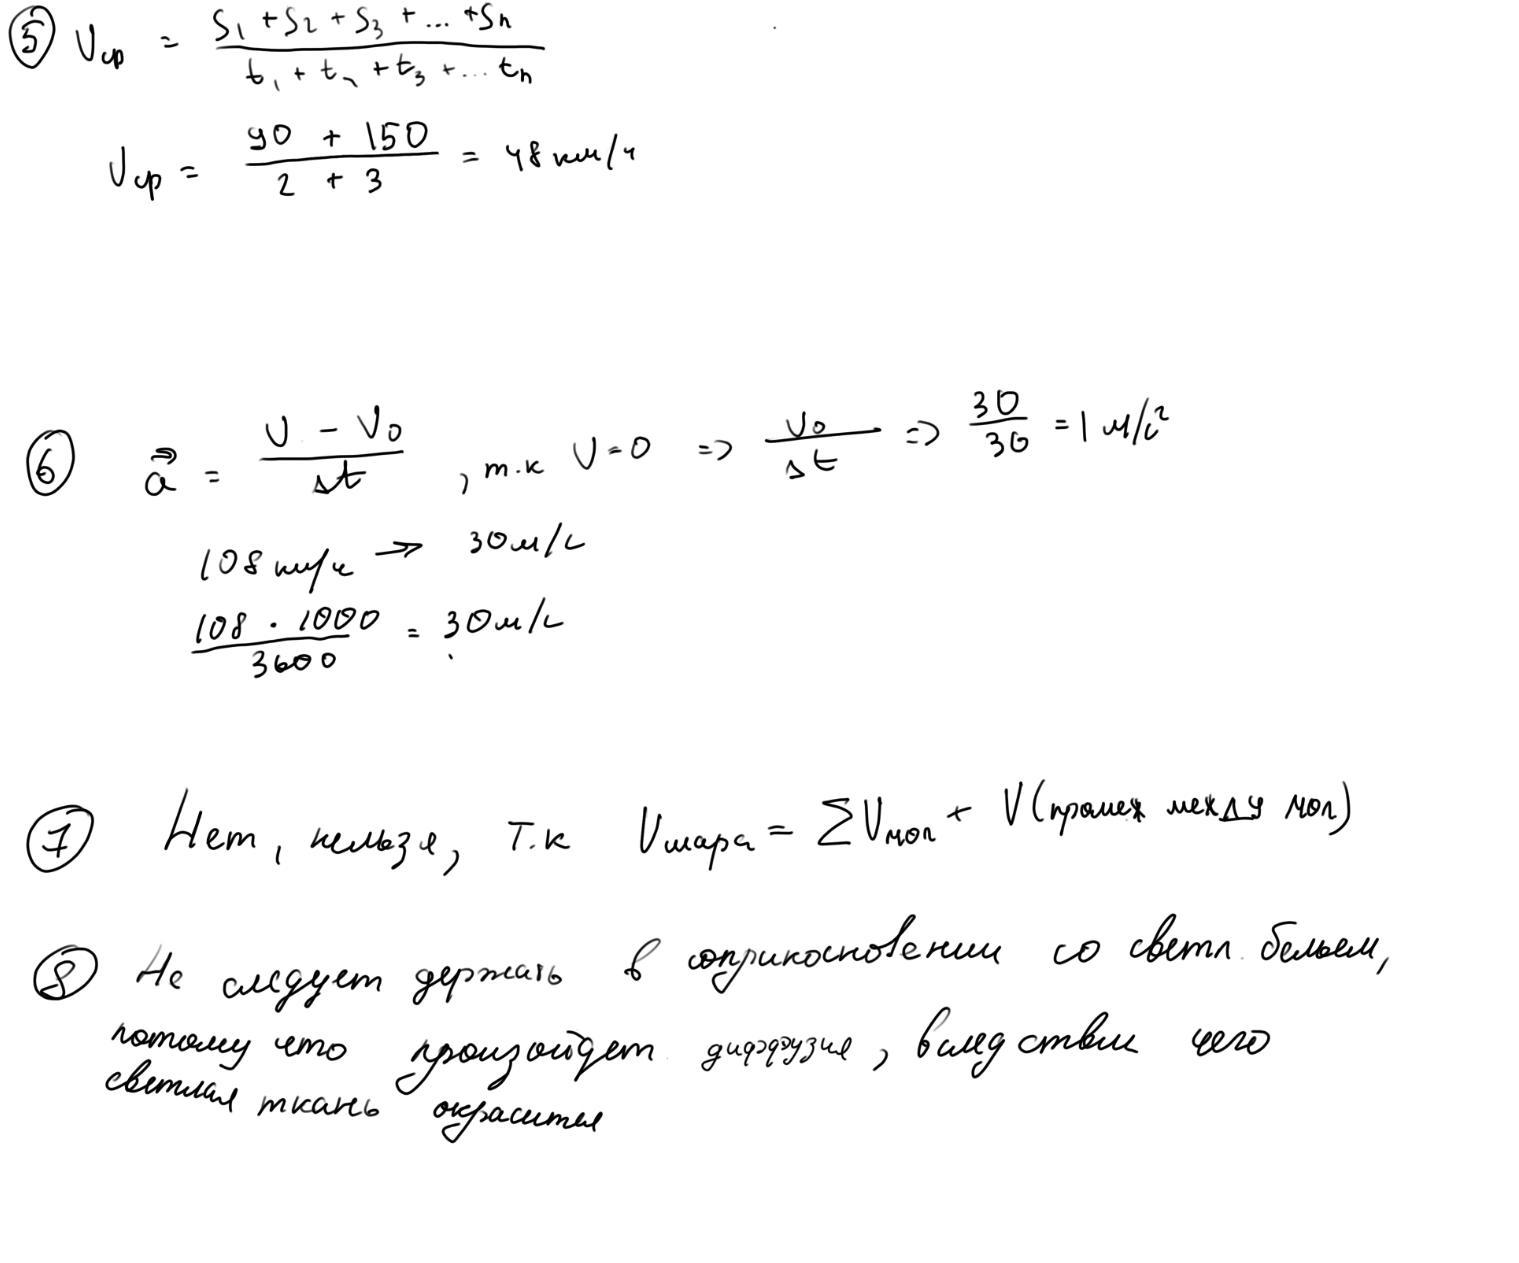 ⑤ Vср = S1 + S2 + S3 + ... + Sn / t1 + t2 + t3 + ... tn
Vср = 90 + 150 / 2 + 3 = 48 км/ч
⑥ a⃗ = V - V0 / Δt , т.к V = 0 => V0 / Δt => 30 / 30 = 1 м/с²
108 км/ч → 30 м/с
108 · 1000 / 3600 = 30 м/с
⑦ Нет, нельзя, т.к Vшара = ΣVмол + V(промеж между мол)
⑧ Не следует держать в соприкосновении со светл. бельем,
потому что произойдет диффузия, вследствии чего
светлая ткань окрасится